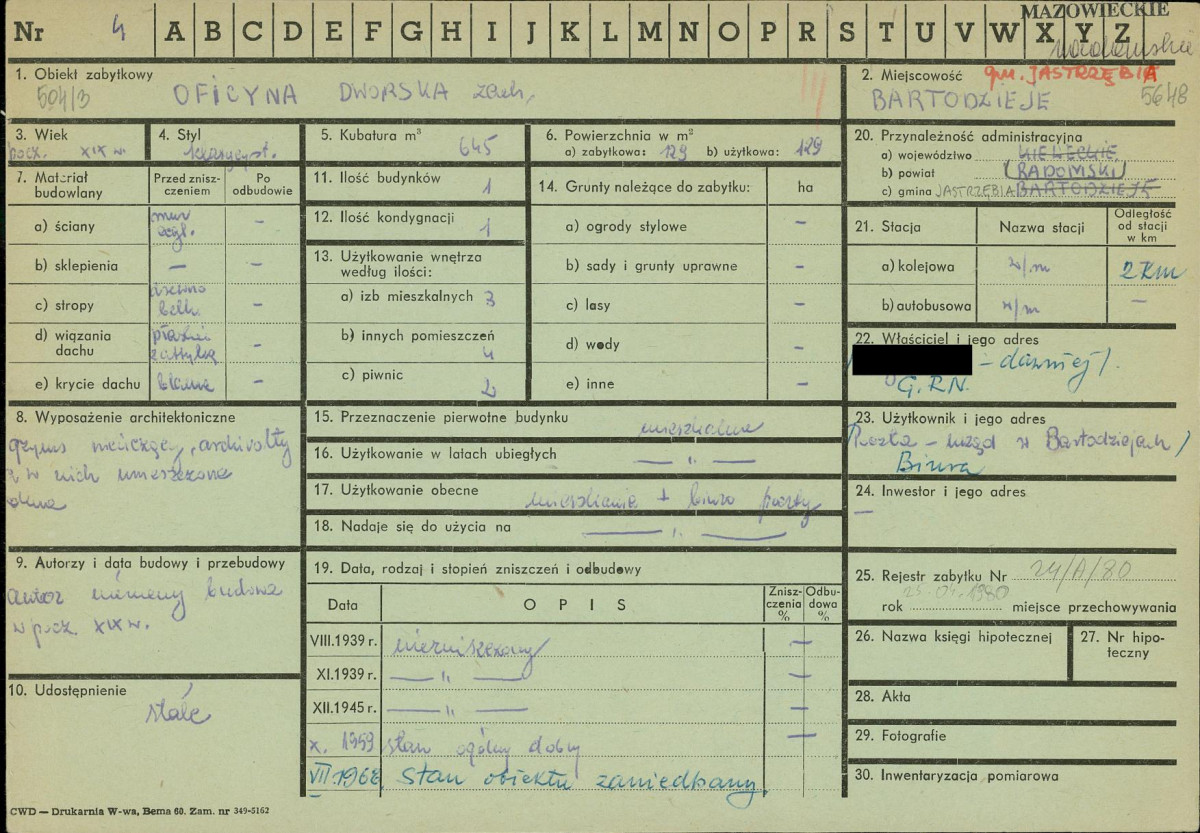 MAZOWIECKIE
Nr 4 A B C D E F G H I J K L M N O P R S T U V W X Y Z
radomskie
1. Obiekt zabytkowy
504/3 OFICYNA DWORSKA zach.
2. Miejscowość gm. JASTRZĘBIA
BARTODZIEJE 5648
3. Wiek
pocz. XIX w.
4. Styl
klasycyst.
5. Kubatura m³
645
6. Powierzchnia w m²
a) zabytkowa: 129 b) użytkowa: 129
7. Materiał budowlany
Przed zniszczeniem
Po odbudowie
a) ściany mur cegl. –
b) sklepienia – –
c) stropy drewno belk. –
d) wiązania dachu –
e) krycie dachu blacha –
8. Wyposażenie architektoniczne
gzyms wieńczący, archiwolty
i w nich umieszczone
okna
9. Autorzy i data budowy i przebudowy
autor nieznany budowa
w pocz. XIX w.
10. Udostępnienie
stałe
11. Ilość budynków 1
12. Ilość kondygnacji 1
13. Użytkowanie wnętrza
według ilości:
a) izb mieszkalnych 3
b) innych pomieszczeń
4
c) piwnic 2
14. Grunty należące do zabytku: ha
a) ogrody stylowe –
b) sady i grunty uprawne –
c) lasy –
d) wody –
e) inne –
15. Przeznaczenie pierwotne budynku
mieszkalne
16. Użytkowanie w latach ubiegłych
— „ —
17. Użytkowanie obecne
mieszkanie + biuro poczty
18. Nadaje się do użycia na — „ —
19. Data, rodzaj i stopień zniszczeń i odbudowy
Data OPIS Zniszczenia % Odbudowa %
VIII.1939 r. niezniszczony —
XI.1939 r. — „ — —
XII.1945 r. — „ — —
X. 1959 stan ogólny dobry —
VII.1968 stan obiektu zaniedbany.
20. Przynależność administracyjna
a) województwo KIELECKIE
b) powiat (RADOMSKI)
c) gmina JASTRZĘBIA BARTODZIEJE
21. Stacja
Nazwa stacji
Odległość od stacji w km
a) kolejowa w/m 2 km
b) autobusowa w/m –
22. Właściciel i jego adres
– dawniej).
G.RN.
23. Użytkownik i jego adres
Poczta – urząd w Bartodziejach /
Biura
24. Inwestor i jego adres
—
25. Rejestr zabytku Nr 24/A/80
25.04.1980
rok miejsce przechowywania
26. Nazwa księgi hipotecznej
27. Nr hipoteczny
28. Akta
29. Fotografie
30. Inwentaryzacja pomiarowa
CWD — Drukarnia W-wa, Bema 60. Zam. nr 349-5162